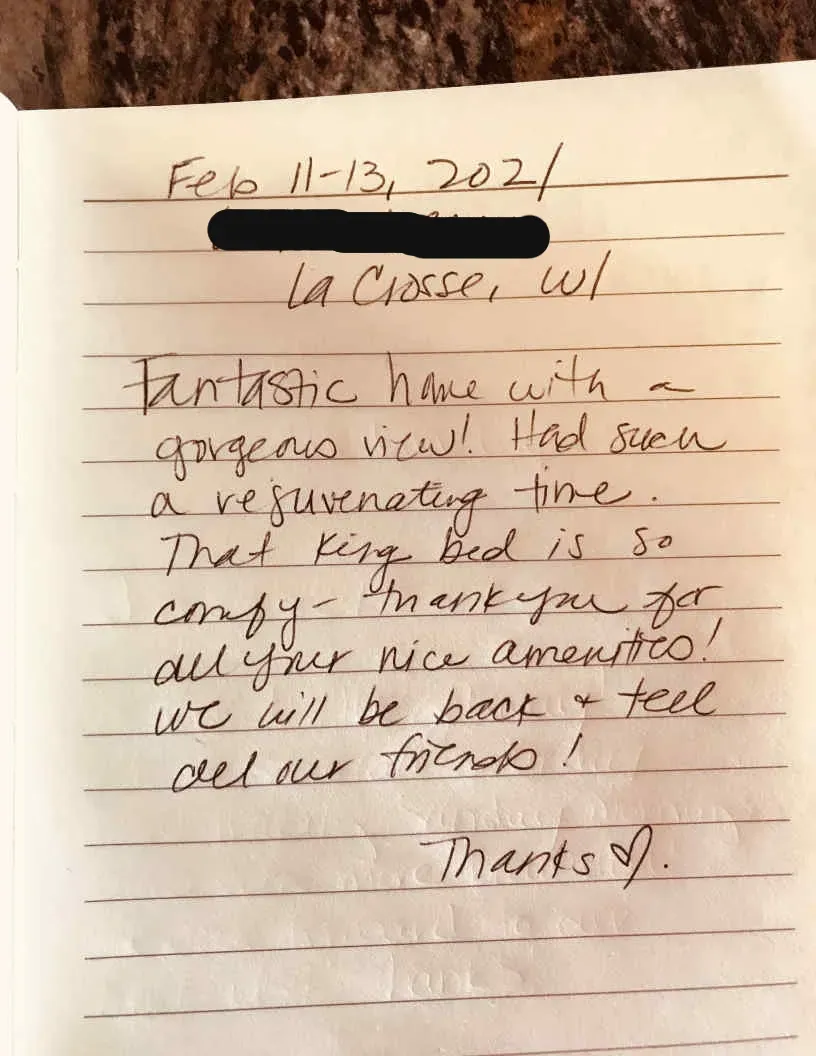 Feb 11-13, 2021
La Crosse, WI
Fantastic home with a
gorgeous view! Had such
a rejuvenating time.
That King bed is so
comfy- thank you for
all your nice amenities!
We will be back & tell
all our friends!
Thanks ♡.